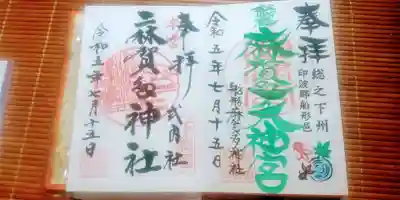 奉拝
総之下州
印波郡船形邑
麻賀多大神宮
船形麻賀多神社
令和五年七月十五日
奉拝
式内社
麻賀多神社
令和五年七月十五日